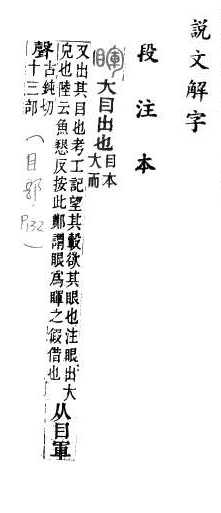 說文解字
段注本
睴 大目出也 目本大而
又出其目也考工記望其轂欲其眼也注眼出大
皃也陸云魚懇反按此鄭謂眼爲睴之假借也 从目軍
聲 古鈍切十三部
(目部. P.132)